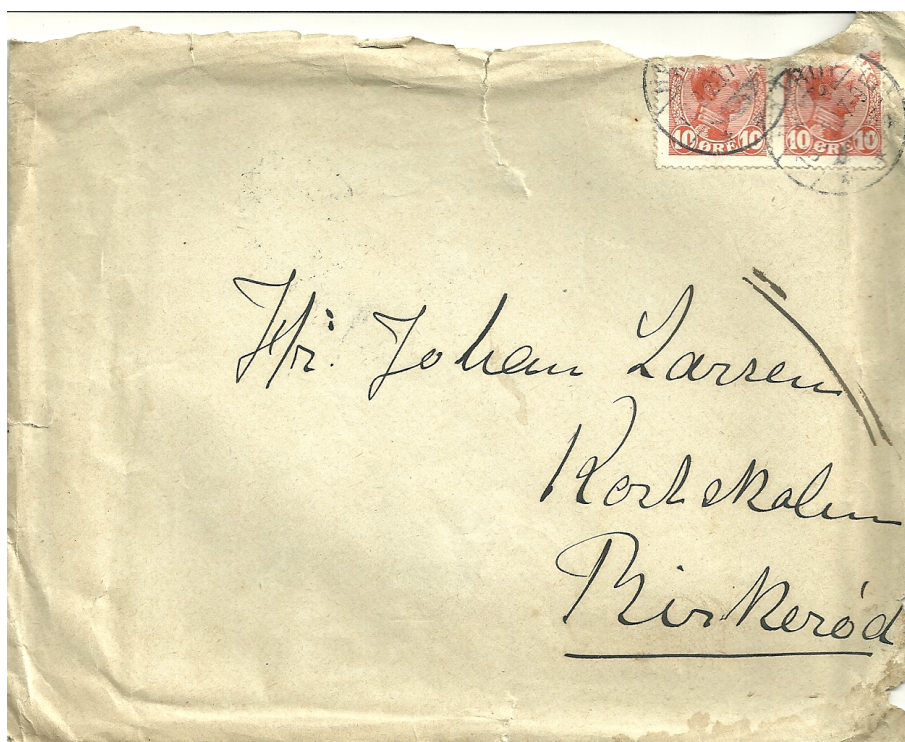 10 ØRE 10 10 ØRE 10
Hr. Johan Larsen
Kostskolen
Birkerød